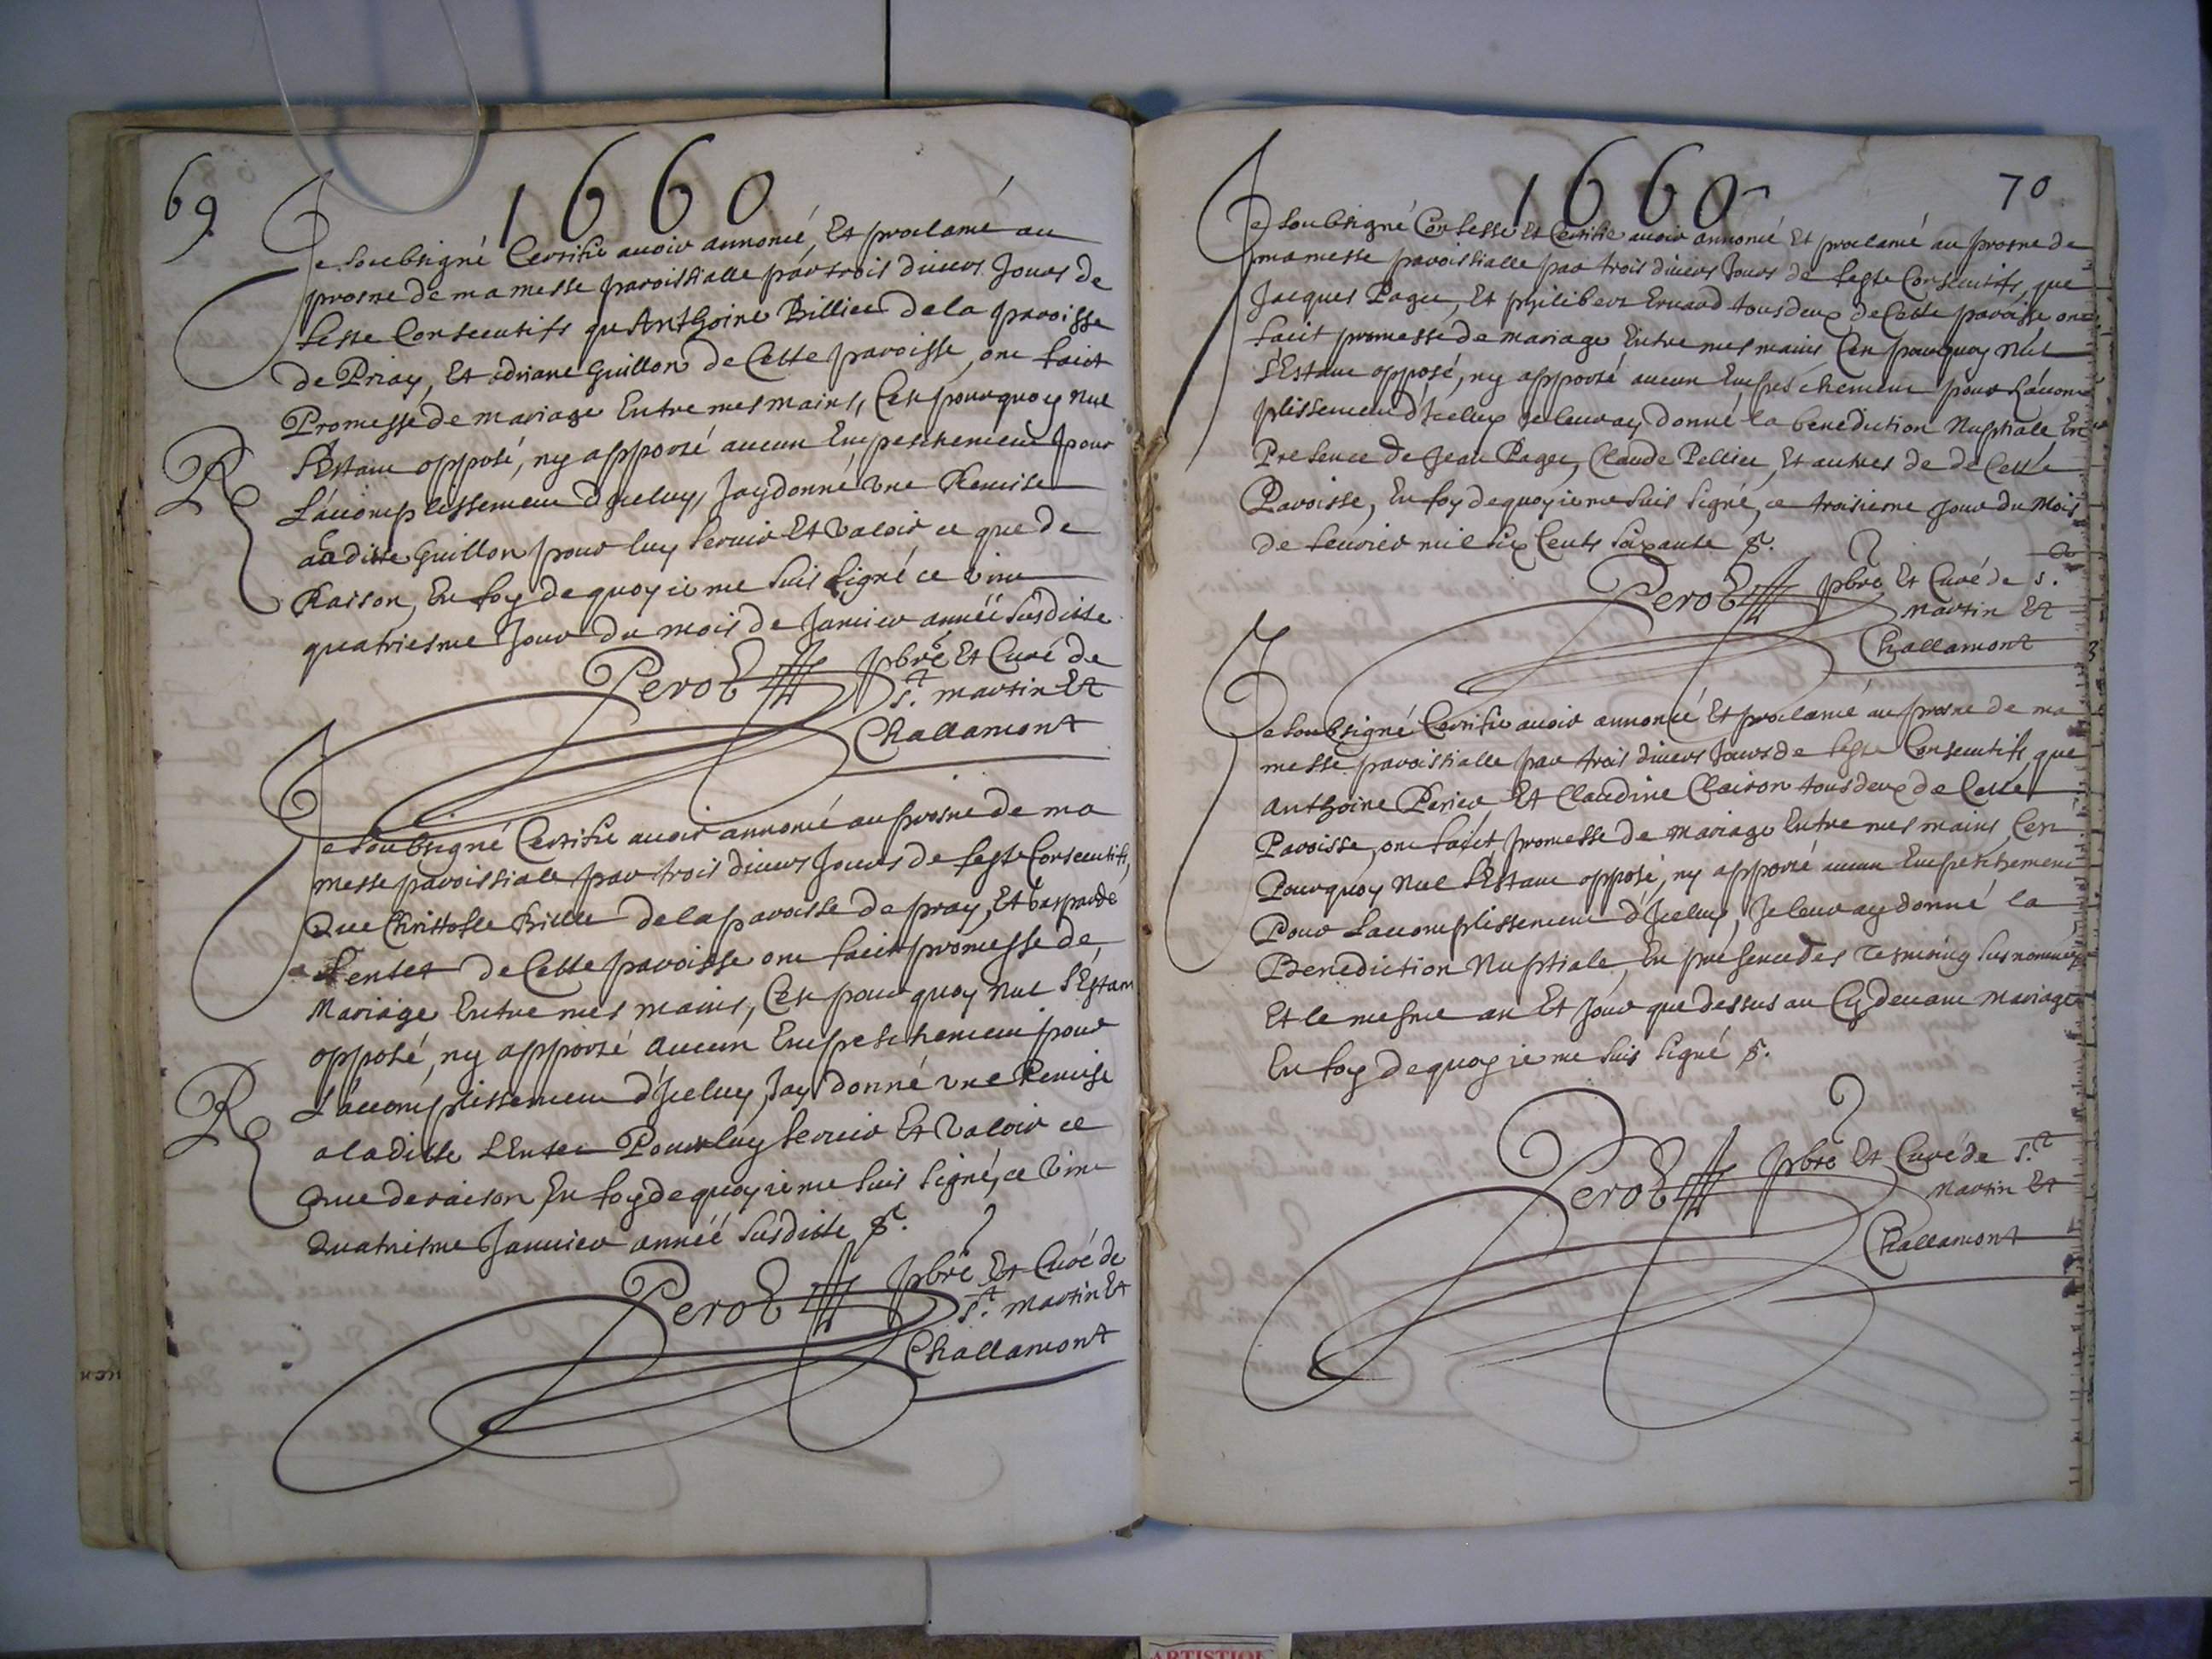 69
1660
Je soubsigné Certifie auoir annoncé, Et proclamé au
prosne de ma messe paroissialle par trois diuers Jours de
feste Consecutifs qu'Anthoine Billiet de la paroisse
de Priay, Et adriane Guillon de Cette paroisse, ont faict
Promesse de mariage Entre mes mains, Cest pourquoy Nul
s'Estant opposé, ny apporzé aucun Empeschement pour
L'accomplissement d'Iceluy, Jay donné vne Remise
a laditte Guillon pour luy seruir Et valoir ce que de
Raison, En foy de quoy ie me suis signé ce vint
quatriesme Jour du mois de Januier année susditte
Perot pbrē Et Curé de
St. martin Et
Challamont
Je Soubsigné Certifie auoir annoncé au prosne de ma
messe paroissiale par trois diuers Jours de feste Consecutifs,
Que Christofle Bielle de la paroisse de pray, Et gasparde
Lentet de Cette paroisse ont faict promesse de
Mariage Entre mes mains, Cest pourquoy Nul s'Estant
opposé, ny apporzé aucun Empeschement pour
L'accomplissement d'Iceluy, Jay donné vne Remise
a laditte Lentet Pour luy seruir Et valoir ce
Que de raison En foy de quoy ie me suis signé, ce vint
Quatriesme Januier année susditte
Perot pbrē Et Curé de
St. martin Et
Challamont
1660
70
Je soubsigné Confesse Et Certifie auoir annoncé Et proclamé au prosne de
ma messe paroissialle par trois diuers Jours de feste Consecutifs, que
Jacques Paget, Et philibert Errard tous deux de Cette paroisse ont
faict promesse de mariage Entre mes mains Cest pourquoy Nul
s'Estant opposé, ny apporzé aucun Empeschement pour L'accom
plissement d'Icelluy Je leur ay donné la benediction Nuptiale En
Presence de Jean Paget, Claude Pellier, Et autres de de Cette
Paroisse, En foy de quoy ie me suis signé, ce troisieme Jour du Mois
de feurier mil six Cents soixante
Perot pbrē Et Curé de St.
Martin Et
Challamont
Je soubsigné Certifie auoir annoncé Et proclamé au prosne de ma
messe paroissialle par trois diuers Jours de feste Consecutifs que
Anthoine Perier, Et Claudine Clairon tous deux de Cette
Paroisse, ont faict promesse de Mariage Entre mes mains Cest
Pourquoy Nul s'Estant opposé, ny apporzé aucun Empeschement
Pour L'accomplissement d'Iceluy, Je leur ay donné la
Benediction Nuptiale, En presence des Tesmoing susnommez
Et le mesme an Et Jour que dessus au Cy deuant Mariage
En foy de quoy ie me suis signé
Perot pbrē Et Curé de St.
Martin Et
Challamont